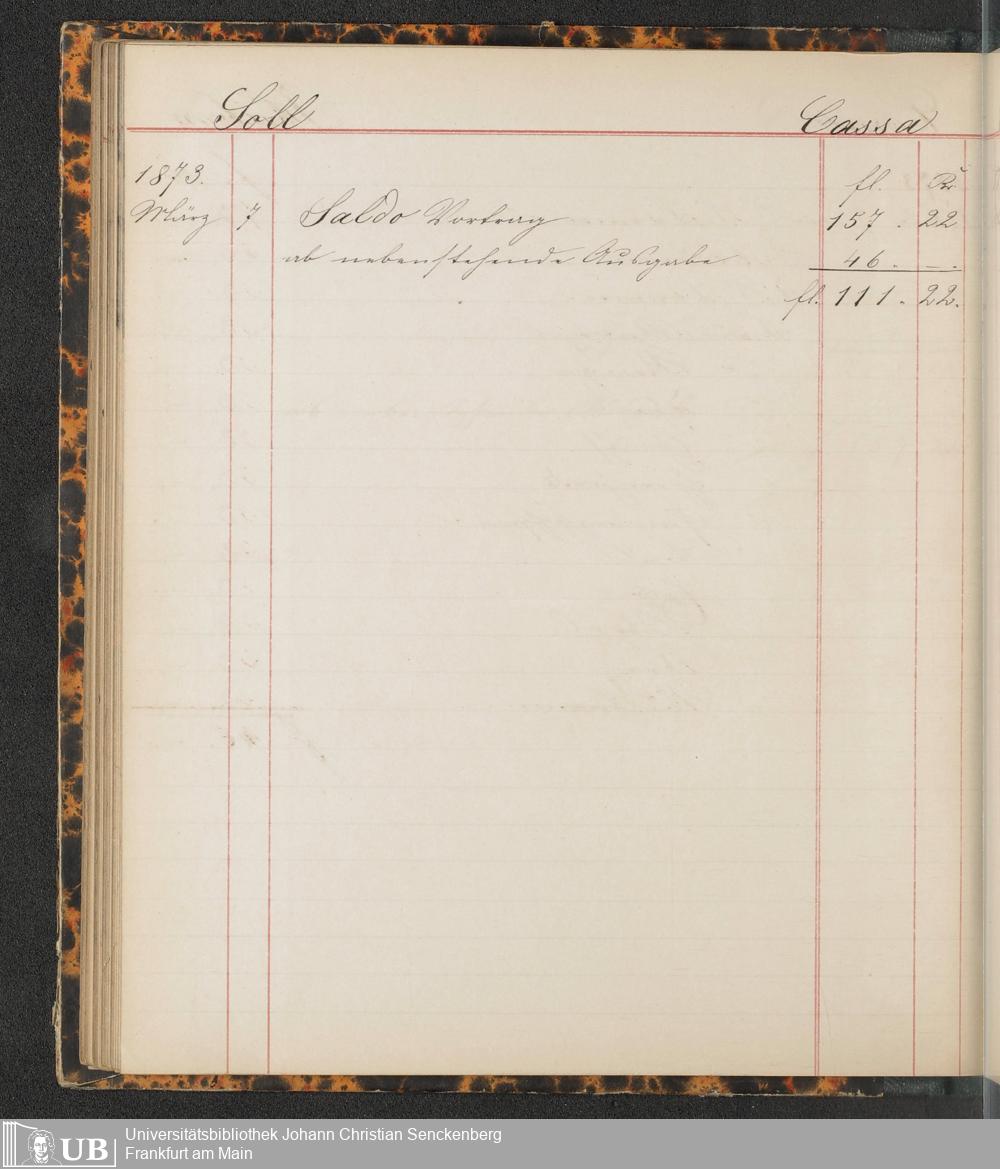 Soll Cassa
1873. fl. Kr
März 7 Saldo Vortrag 157 . 22
ab nebenstehende Ausgabe 46 . —.
fl. 111 . 22.
UB Universitätsbibliothek Johann Christian Senckenberg
Frankfurt am Main